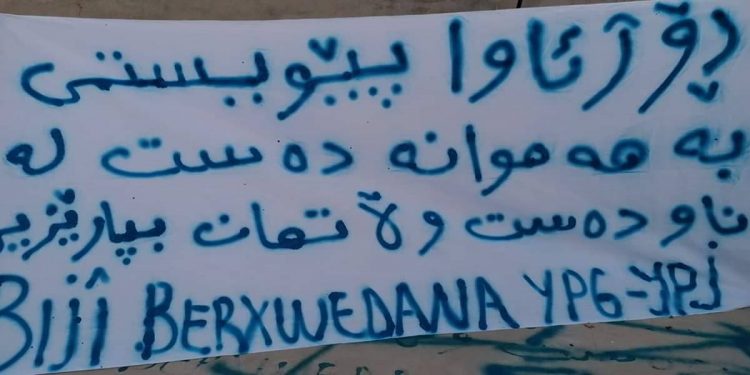 ڕۆژئاوا پێویستی
بە هەموانە دەست لە
ناو دەست وڵاتمان بپارێزین
BIJî BERXWEDANA YPG-YPJ